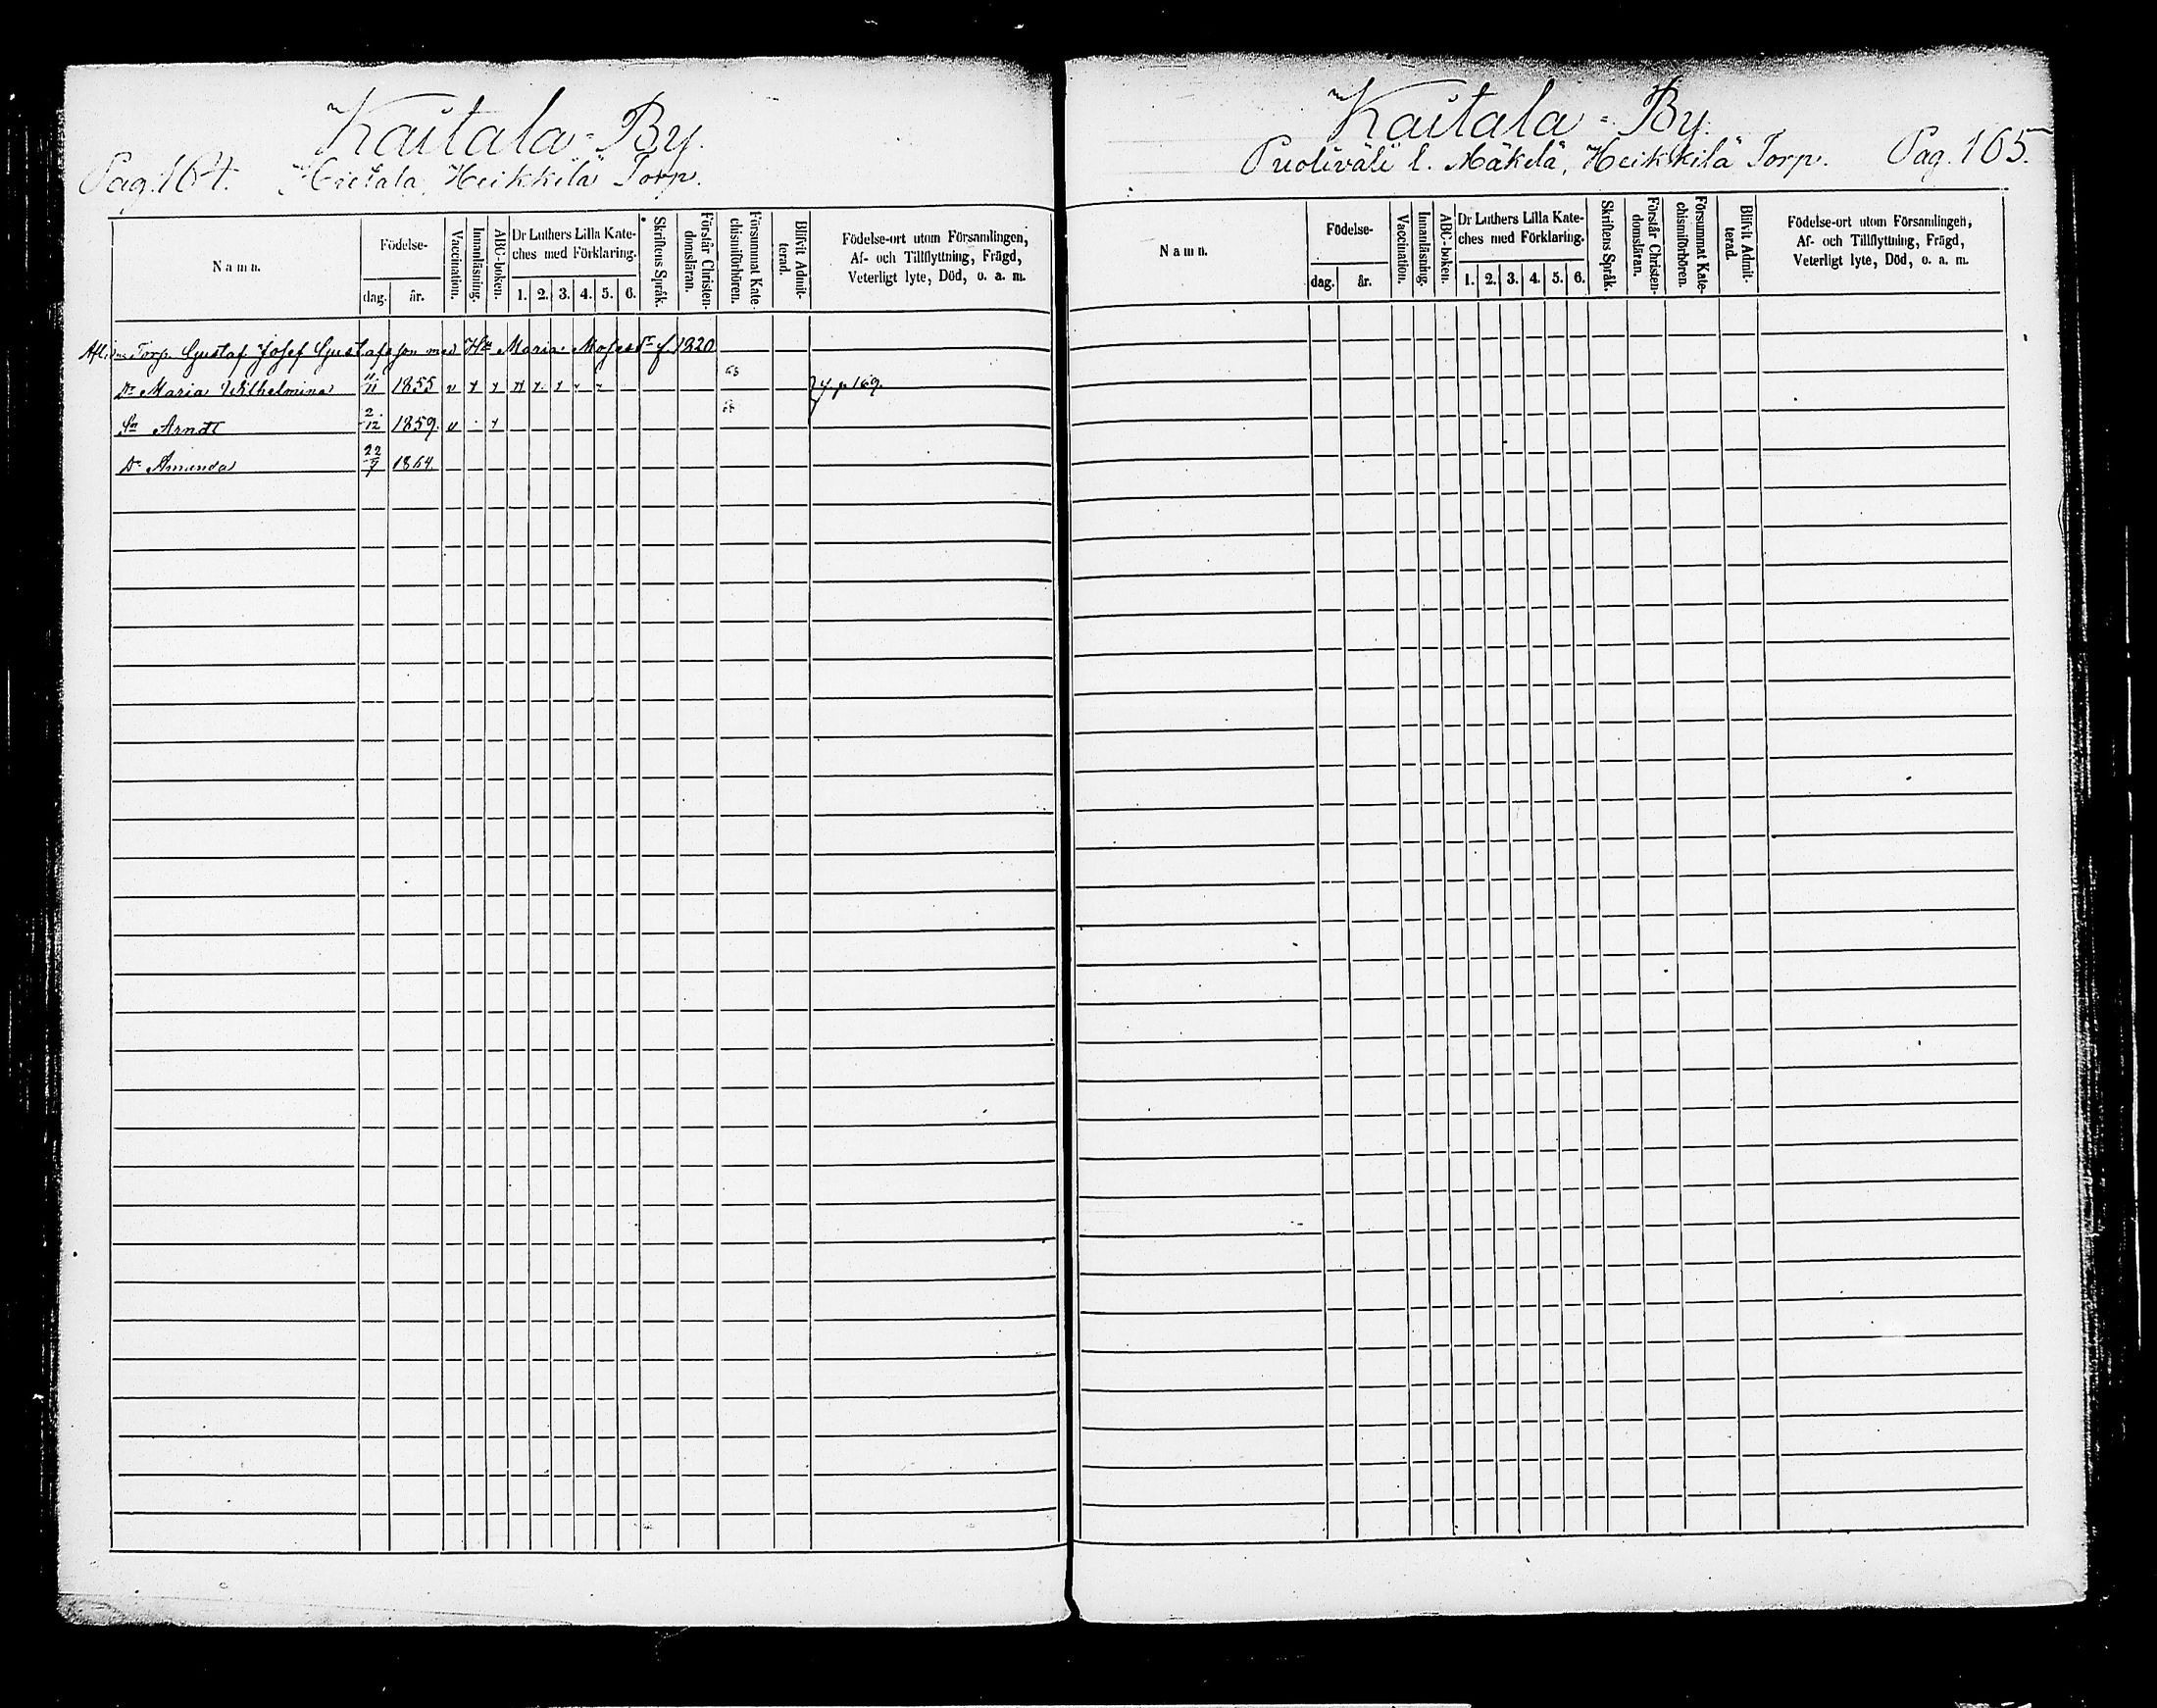 Kaitala=By.
Pag. 164. Hietala, Heikkilä Torp.
Namn.
Födelse-
dag. år.
Vaccination.
Innanläsning.
ABC-boken.
Dr Luthers Lilla Kate-
ches med Förklaring.
1. 2. 3. 4. 5. 6.
Skriftens Språk.
Förstår Christen-
domsläran.
Försummat Kate-
chismiförhören.
Blifvit Admit-
terad.
Födelse-ort utom Församlingen,
Af- och Tillflyttning, Frägd,
Veterligt lyte, Död, o. a. m.
Afl. Torp. Gustaf Josef Gustafsson med Hu Maria Mosesdr f. 1820
Dr Maria Wilhelmina 11/11 1855 v x x x x x 63 p 169.
Sn Arndt 2/12 1859. v x
Dr Amanda 22/7 1864.
Kaitala=By.
Puoliväli l. Mäkelä, Heikkilä Torp. Pag. 165.
Namn.
Födelse-
dag. år.
Vaccination.
Innanläsning.
ABC-boken.
Dr Luthers Lilla Kate-
ches med Förklaring.
1. 2. 3. 4. 5. 6.
Skriftens Språk.
Förstår Christen-
domsläran.
Försummat Kate-
chismiförhören.
Blifvit Admit-
terad.
Födelse-ort utom Församlingen,
Af- och Tillflyttning, Frägd,
Veterligt lyte, Död, o. a. m.